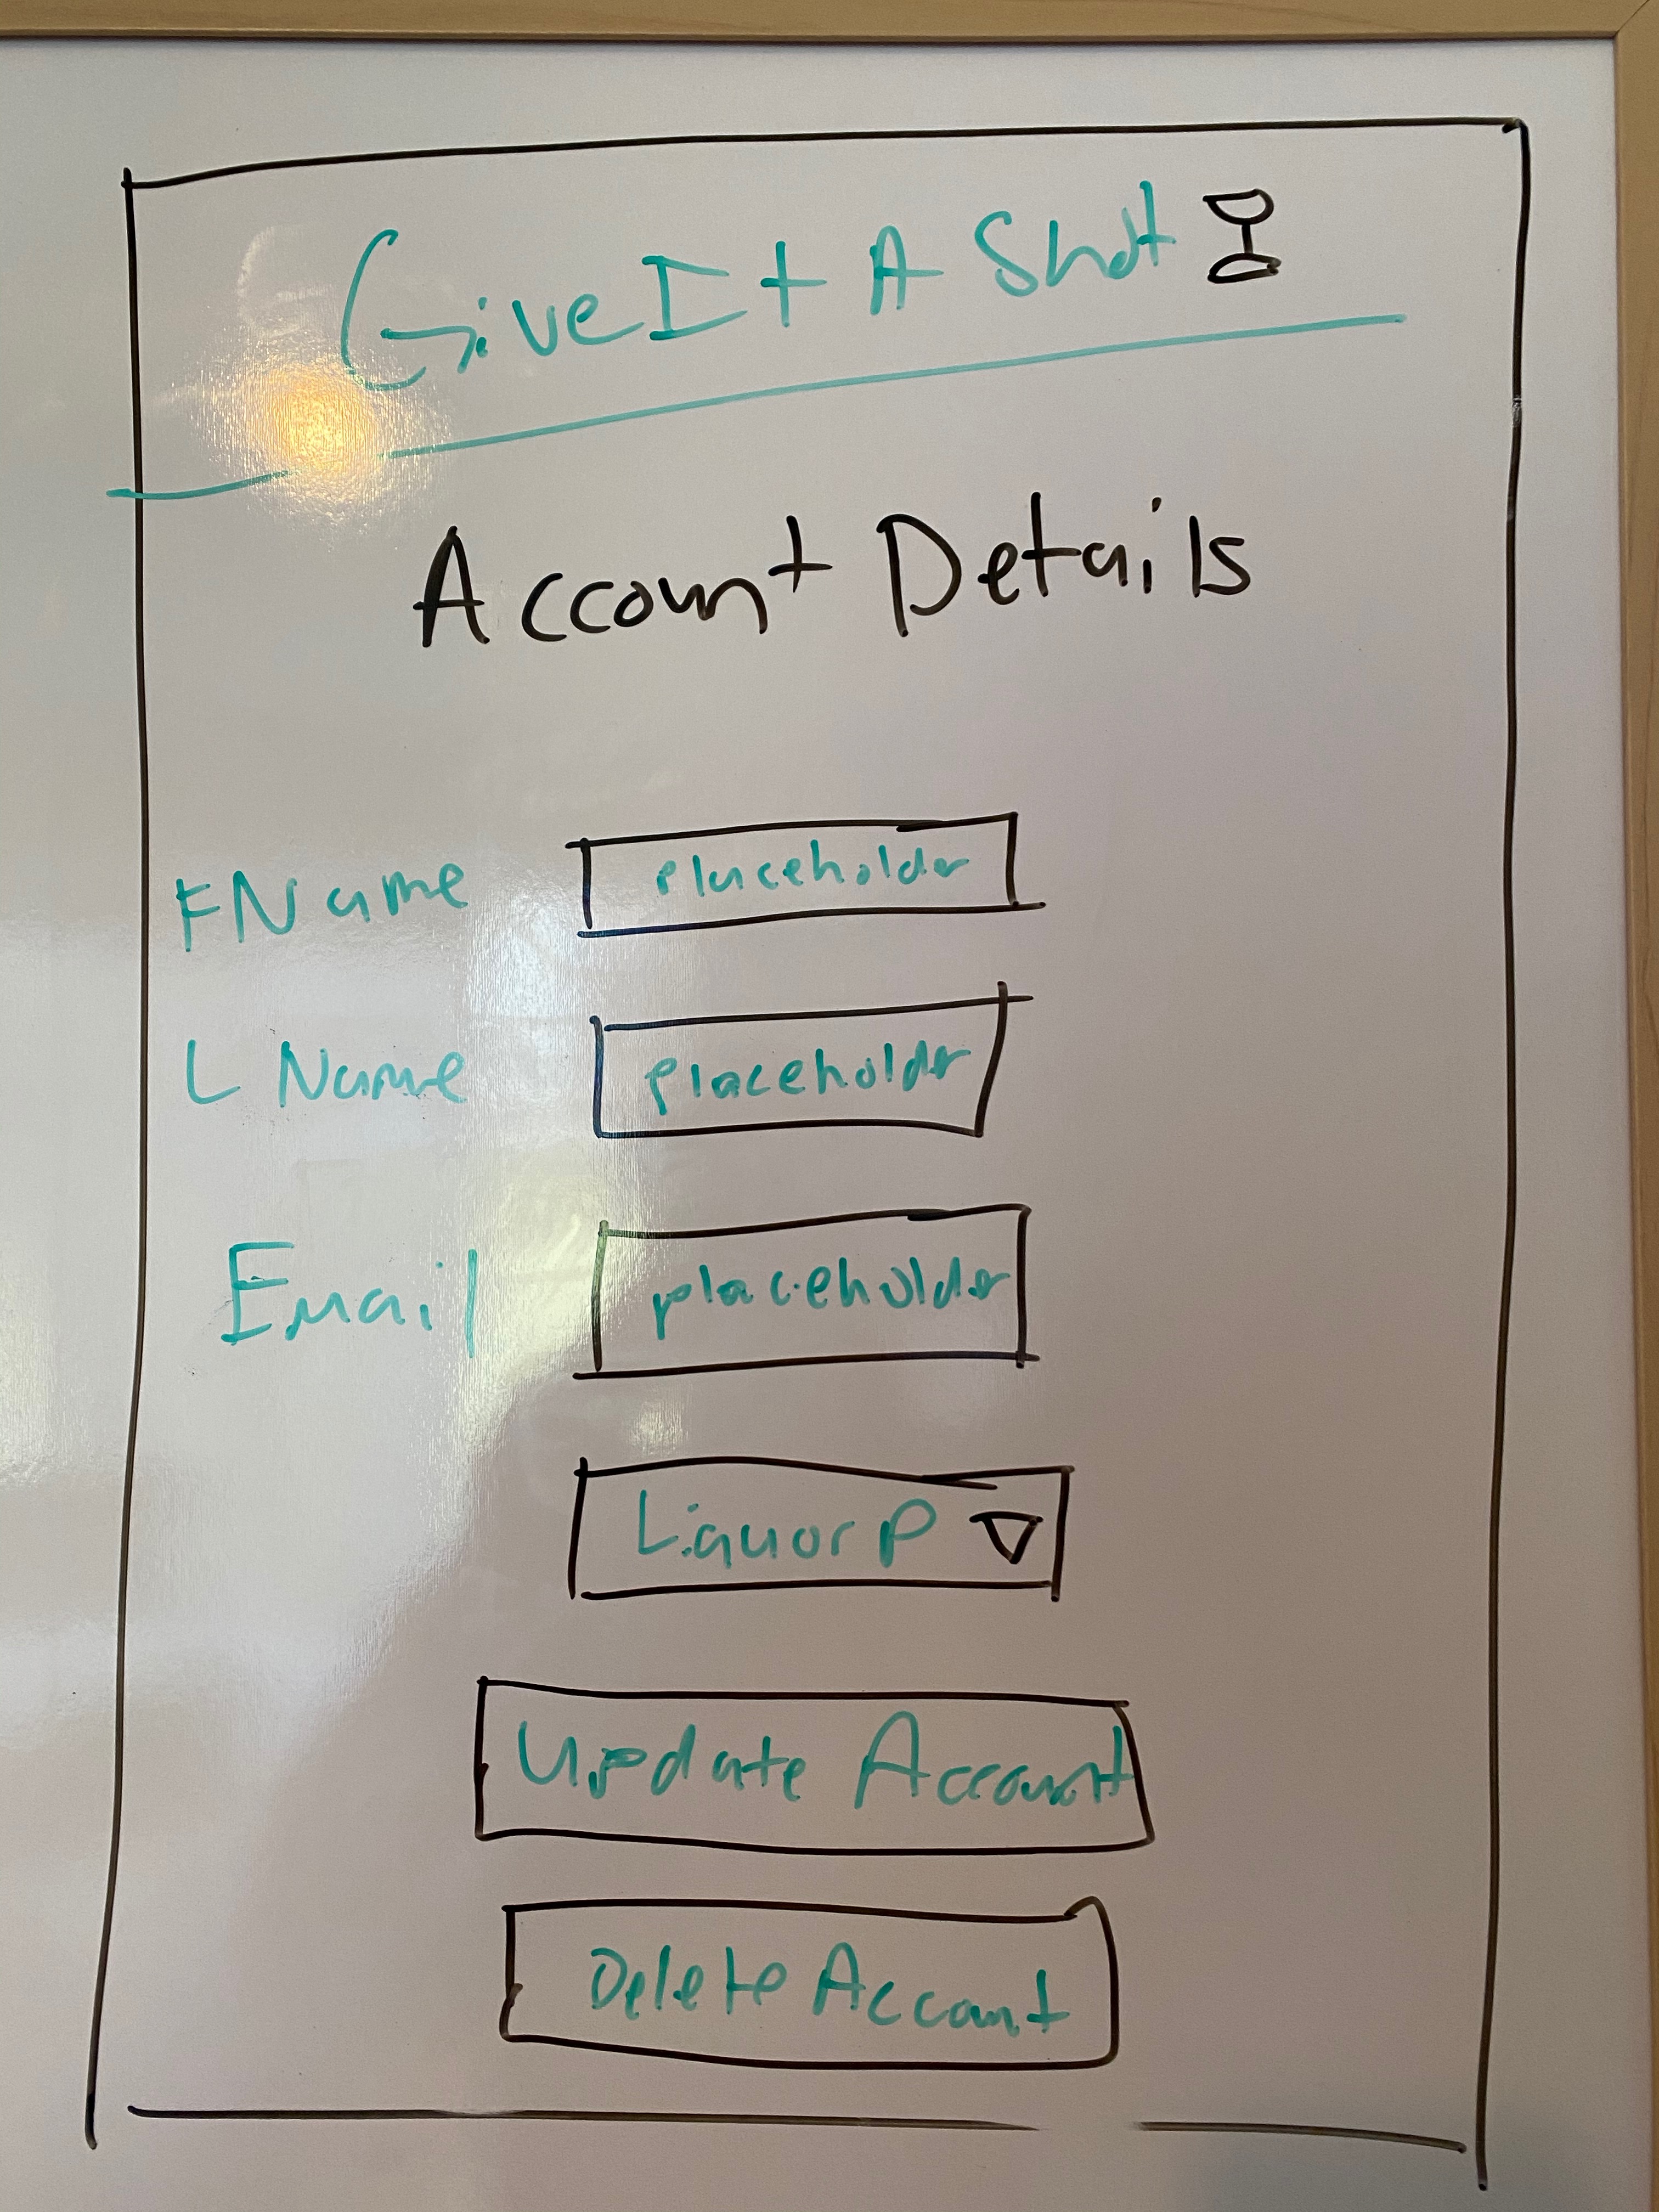 Give It A Shot
Account Details
FName placeholder
L Name placeholder
Email placeholder
Liquor P
Update Account
Delete Account